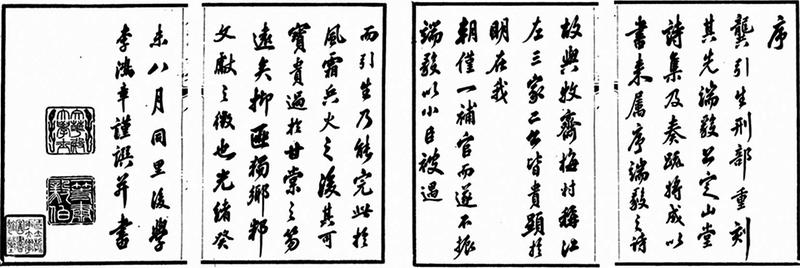 序
龔引生刑部重刻
其先端毅公定山堂
詩集及奏疏將成以
書來屬序端毅之詩
故與牧齋梅村稱江
左三家二公皆貴顯於
明在我
朝僅一補官而遂不振
端毅以小臣被遇
而引生乃能完此於
風霜兵火之後其可
寶貴過於甘棠之笏
遠矣抑匪獨鄉邦
文獻之徵也光緒癸
未八月同里後學
李鴻章謹譔并書
文華殿大學士
一等肅毅伯